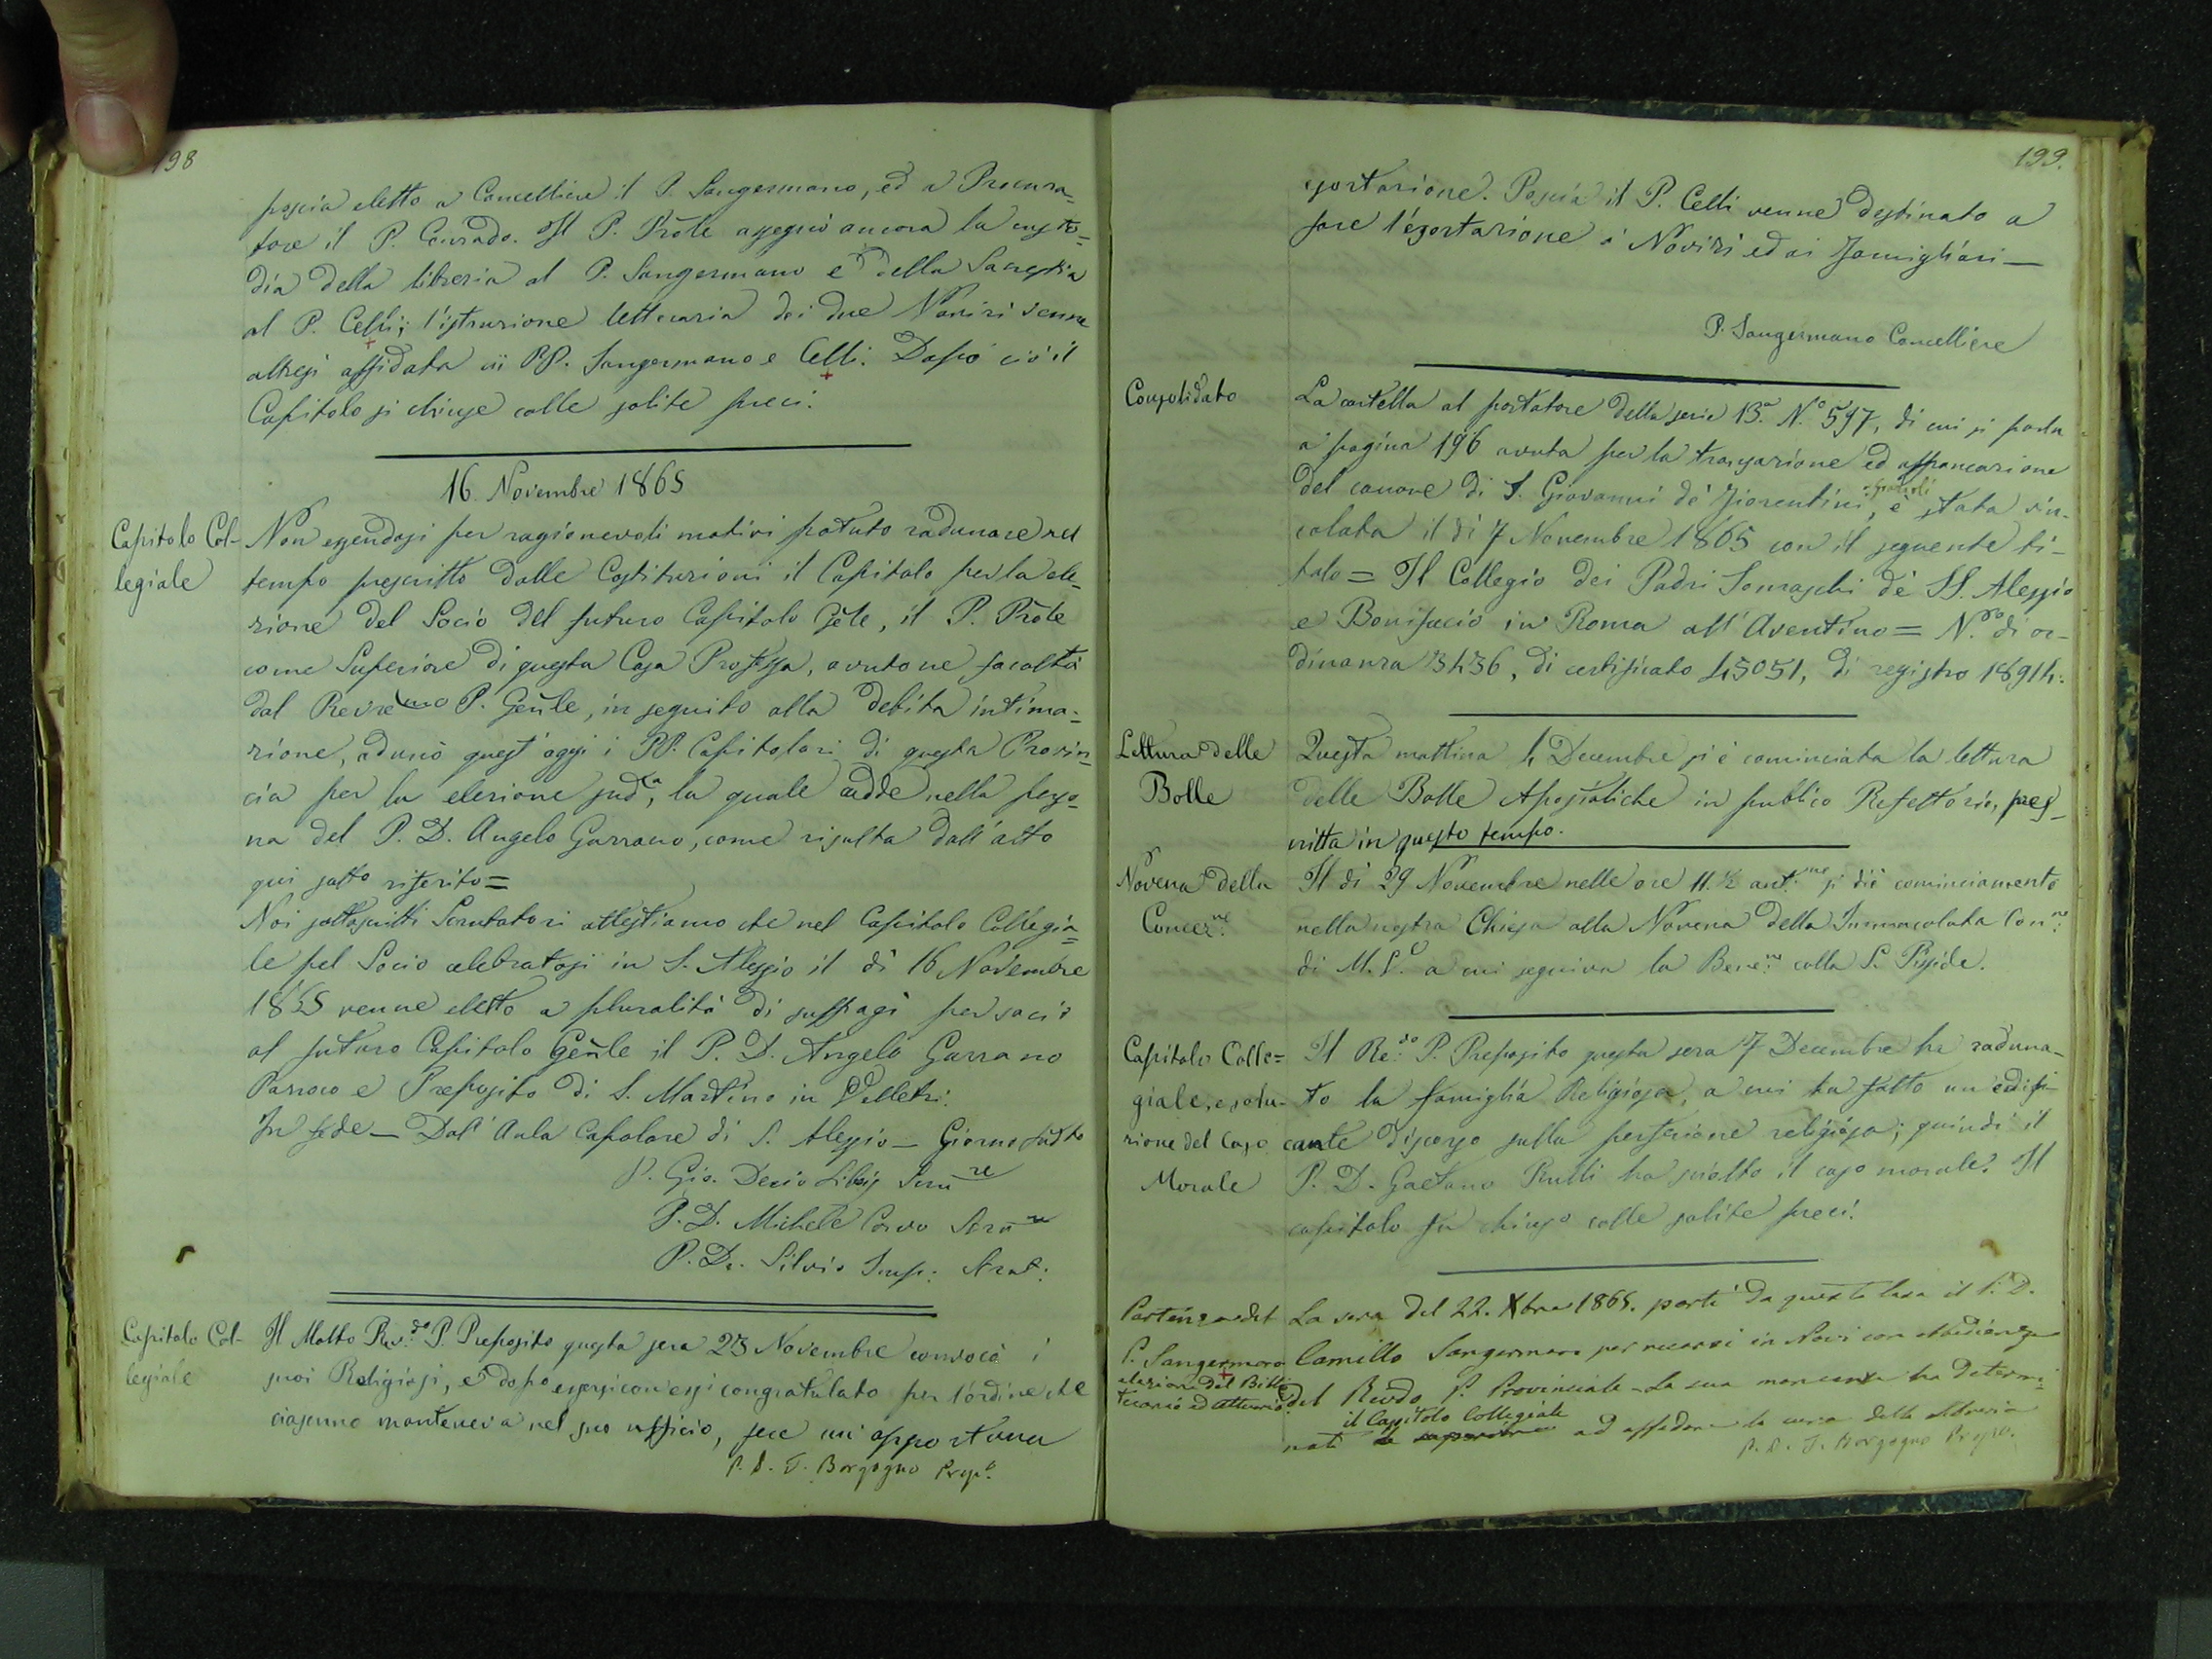 198
poscia eletto a Cancelliere il P. Sangermano, ed a Procura=
tore il P. Corrado. Il P. Prõle assegnò ancora la custo=
dia della libreria al P. Sangermano e della Sacrestia
al P. Celli; l'istruzione letteraria dei due Novizi venne
altresì affidata ai PP. Sangermano e Celli. Dopo ciò il
Capitolo si chiuse colle solite preci.
16. Novembre 1865
Capitolo Col-
legiale
Non essendosi per ragionevoli motivi potuto radunare nel
tempo prescritto dalle Costituzioni il Capitolo per la ele=
zione del Socio del futuro Capitolo Gẽle, il P. Prõle
come Superiore di questa Casa Professa, avutone facoltà
dal Revermo P. Geñle, in seguito alla debita intima=
zione, adunò quest'oggi i PP. Capitolari di questa Provin=
cia per la elezione sudª, la quale cadde nella perso=
na del P. D. Angelo Garrano, come risulta dall'atto
qui sotto riferito=
Noi sottoscritti Scrutatori attestiamo che nel Capitolo Collegia=
le pel Socio celebratosi in S. Alessio il dì 16 Novembre
1865 venne eletto a pluralità di suffragi per socio
al futuro Capitolo Geñle il P. D. Angelo Garrano
Parroco e Preposito di S. Martino in Velletri.
In fede — Dall'Aula Capolare di S. Alessio — Giorno sudto
P. Gio. Decio Libois Scrure
P. D. Michele Corvo Scrure
P. D. Silvio Imp: Scrut:
Capitolo Col-
legiale
Il Molto Rev.do P. Preposito questa sera 23 Novembre convocò i
suoi Religiosi, e dopo essersi con essi congratulato per l'ordine che
ciascuno manteneva nel suo ufficio, fece un'opportuna
P. D. T. Borgogno Prepo.
199.
esortazione. Poscia il P. Celli venne destinato a
fare l'esortazione a' Novizi ed ai Famigliari —
P. Sangermano Cancelliere
Consolidato
La cartella al portatore della serie 13.ª N.º 597, di cui si parla
a pagina 196 avuta per la transazione ed affrancazione
del canone di S. Giovanni de' Fiorentini, è stata vin-
colata il dì 7 Novembre 1865 con il seguente ti-
tolo = Il Collegio dei Padri Somaschi de' SS. Alessio
e Bonifacio in Roma all'Aventino = N.ro di or-
dinanza 3436, di certificato 45051, di registro 18914.
Lettura delle
Bolle
Questa mattina 4 Decembre si è cominciata la lettura
delle Bolle Apostoliche in pubblico Refettorio, pres=
critta in questo tempo.
Novena della
Concez.ne
Il dì 29 Novembre nelle ore 11. ½ ant.me si diè cominciamento
nella nostra Chiesa alla Novena della Immacolata Con.ne
di M. S. a cui seguiva la Bene.ne colla S. Pisside.
Capitolo Colle=
giale, e solu-
zione del Caso
Morale
Il Re.do P. Preposito questa sera 7 Decembre ha raduna-
to la famiglia Religiosa, a cui ha fatto un'edifi-
cante discorso sulla perfezione religiosa; quindi il
P. D. Gaetano Rulli ha sciolto il caso morale. Il
capitolo fu chiuso colle solite preci.
Partenza del
P. Sangermano
elezione del Biblio
tecario ed Attuario.
La sera del 22. Xbre 1865. partì da questa Casa il P. D.
Camillo Sangermano per recarsi in Novi con obbedienza
del Revdo P. Provinciale — La sua mancanza ha determi=
nato il Capitolo Collegiale ad affidare la cura della libreria
P. D. T. Borgogno Prepo.